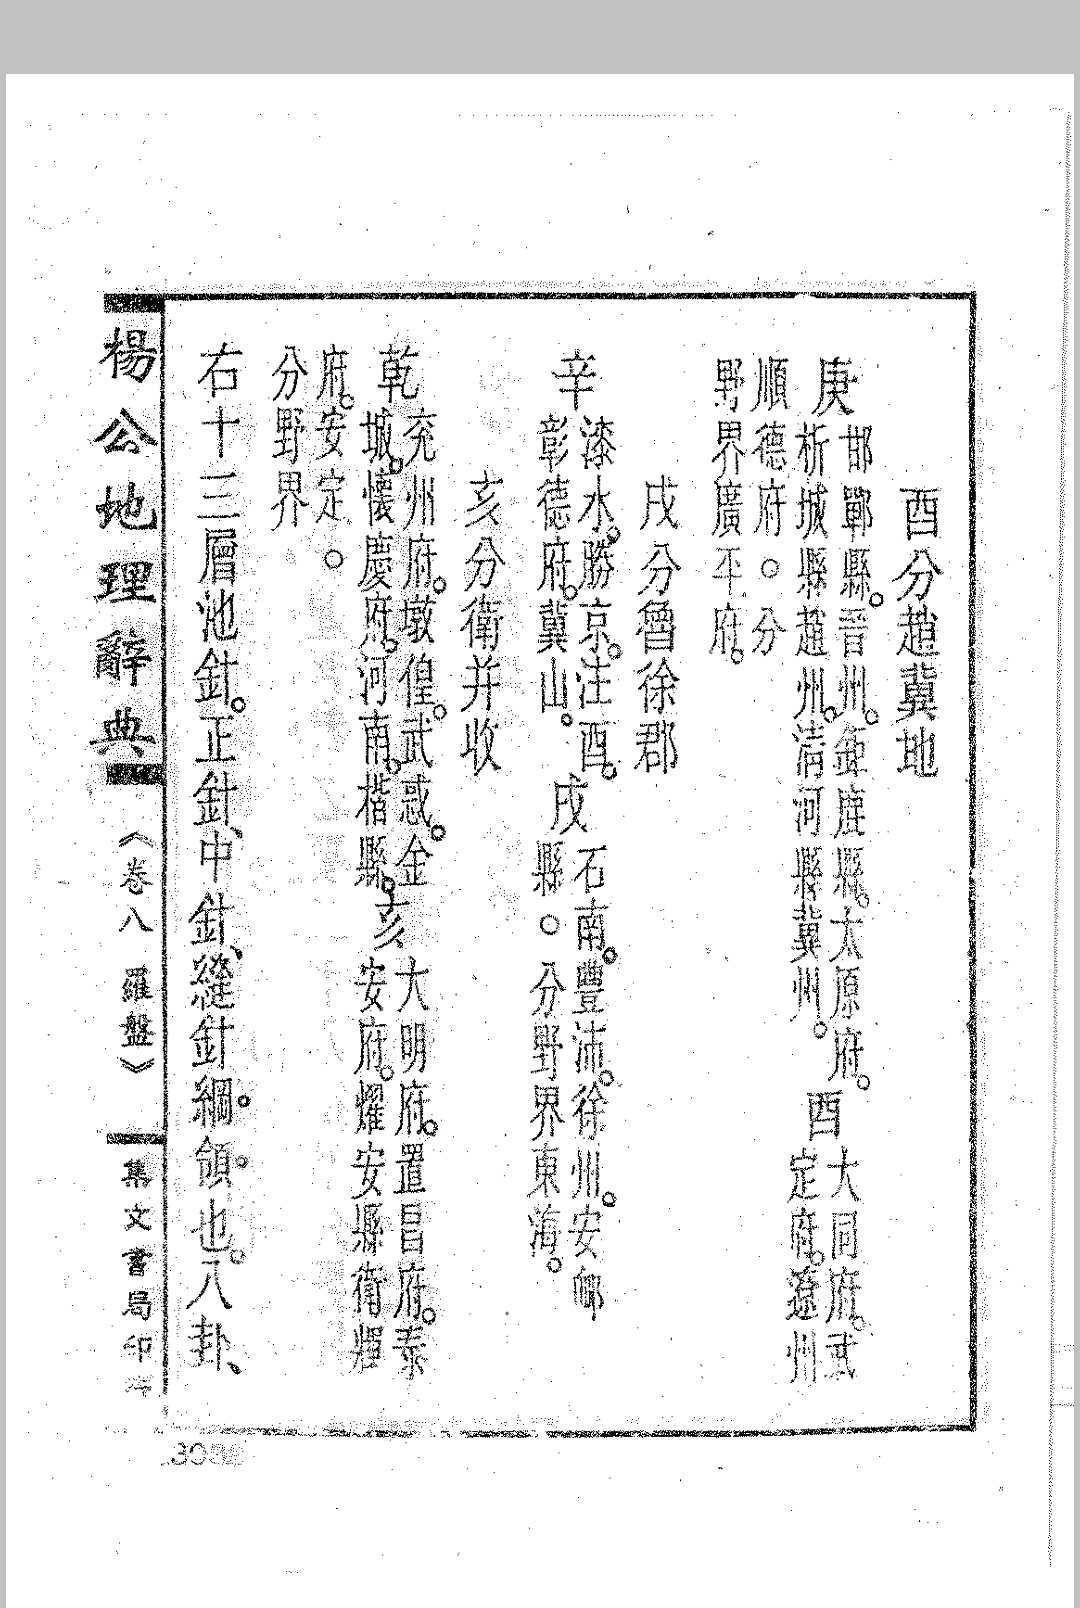 酉分趙冀地
庚
邯鄲縣。晉州。鉅鹿縣。太原府。
析城縣趙州。清河縣冀州。
酉
大同府。武
定府。遼州
順德府。分
野界廣平府。
戌分魯徐郡
辛
漆水。勝京。注酉。
彰德府。冀山。
戌
石南。豐沛。徐州。安鄉
縣。分野界東海。
亥分衛并收
乾
兖州府。墩偟。武惑。金
城。懷慶府。河南。楷縣。
亥
大明府。置昌府。泰
安府。耀安縣衛輝
府。安定。
分野界
右十三層池針。正針、中針、縫針綱。領。也。八卦、
楊公地理辭典
《卷八 羅盤》
集文書局印